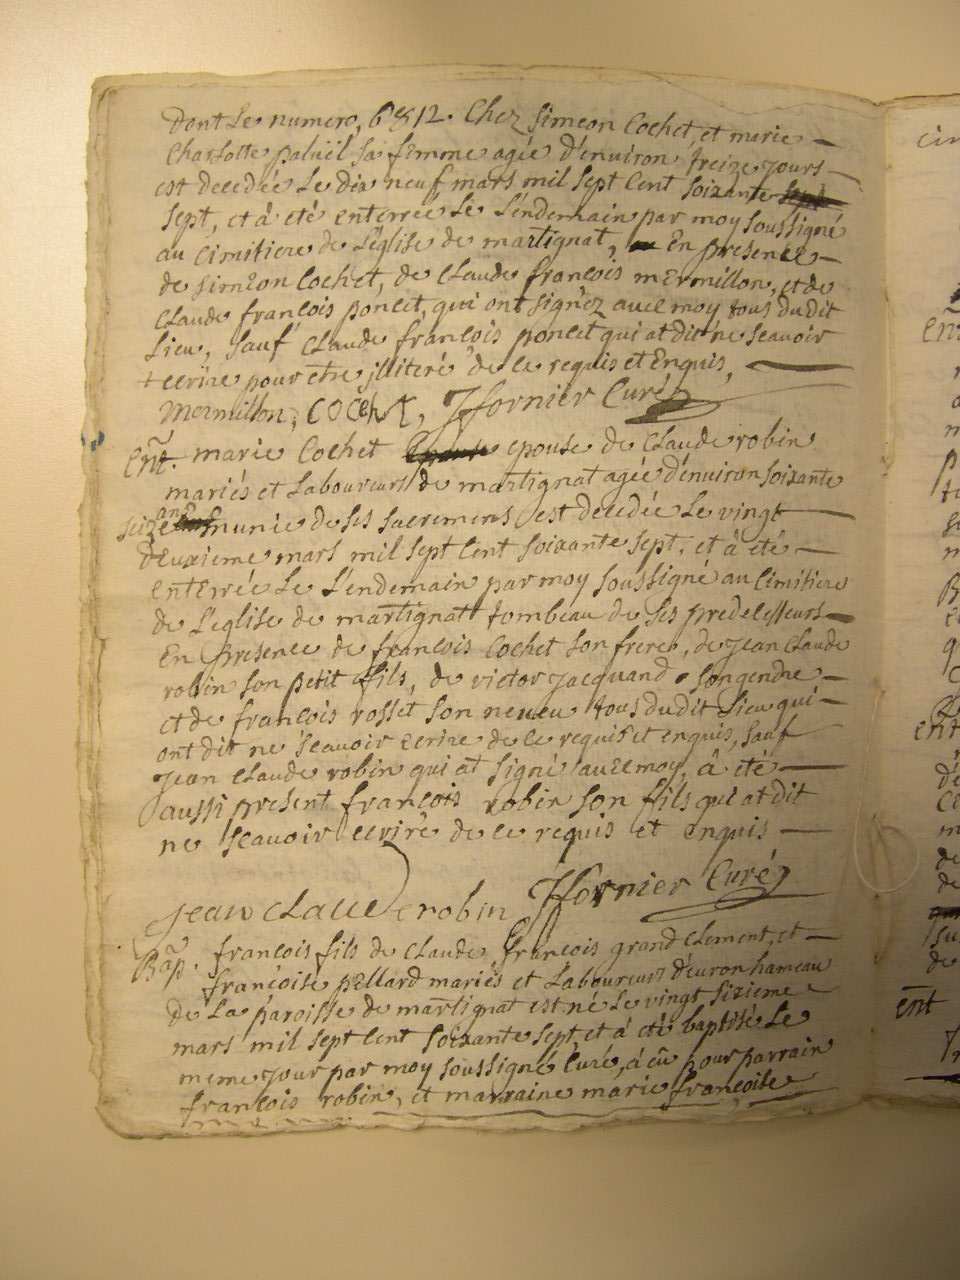 dont le numero, 6812. Chez Simeon Cochet, et marie
Charlotte paluëil sa femme agée d'environ treize jours
est decedée le dix neuf mars mil sept cent soixante
sept, et à eté enterrée le l'endemain par moy soussigné
au cimitiere de l'église de martignat, En presence
de simeon Cochet, de claude françois mermillon, et de
claude françois poncet, qui ont signéz avec moy tous dudit
lieu, sauf claude françois poncet qui at dit ne sçauoir
+ ecrire pour etre jlliteré de ce requis et Enquis,
Mermillon, COCHET, Jfornier Curé
Ent. marie Cochet epouse de claude robin
mariés et laboureurs de martignat agée d'environ soixante
seize ans munie de ses sacremens est decedée le vingt
deuxieme mars mil sept cent soixante sept, et à eté
enterrée le l'endemain par moy soussigné au cimitiere
de l'eglise de martignat tombeau de ses predecesseurs
En presence de françois Cochet son frere, de jean claude
robin son petit fils, de victor jacquand songendre
et de françois rosset son neueu tous dudit lieu qui
ont dit ne sçauoir ecrire de ce requis et enquis, sauf
jean claude robin qui at signé auec moy, à eté
aussi present françois robin son fils qui at dit
ne sçauoir ecrire de ce requis et enquis
jean claude robin Jfornier Curé
Bap. françois fils de claude françois grand clement, et
françoise pellard mariés et laboureurs d'euron hameau
de la paroisse de martignat est né le vingt sizieme
mars mil sept cent soixante sept, et à eté baptisé le
meme jour par moy soussigné Curé, à eû pour parrain
françois robin, et marraine marie françoise